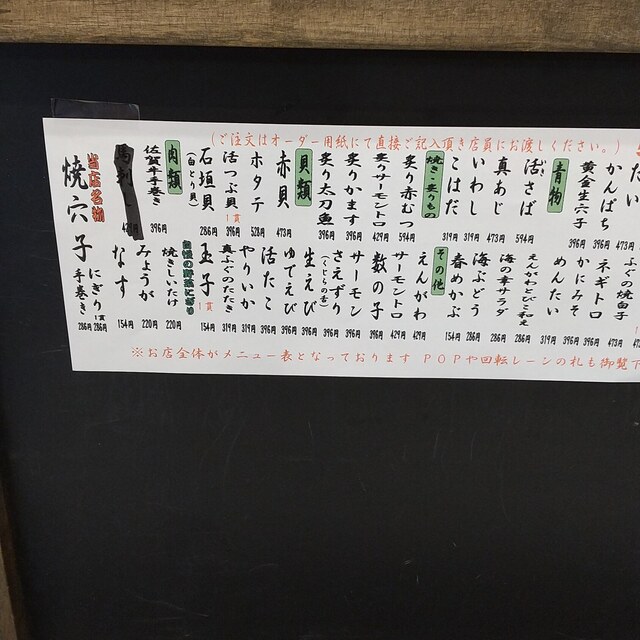 (ご注文はオーダー用紙にて直接ご記入頂き店員にお渡しください。)
たい
かんぱち 396円
黄金生穴子 396円
青物
活さば 594円
真あじ 473円
いわし 319円
こはだ 319円
焼き・炙りもの
炙り赤むつ 594円
炙りサーモントロ 429円
炙りかます 396円
炙り太刀魚 396円
貝類
赤貝 473円
ホタテ 528円
活つぶ貝 一貫 396円
石垣貝 (白とり貝) 286円
肉類
佐賀牛手巻き 396円
ふぐの焼白子
ネギトロ 473円
かにみそ 396円
めんたい 319円
えんがわとびこ和え 286円
海の幸サラダ 286円
海ぶどう 286円
春めかぶ 154円
その他
えんがわ 429円
サーモントロ 429円
数の子 396円
サーモン 396円
さえずり (くじらの舌) 396円
生えび 396円
ゆでえび 396円
活たこ 396円
やりいか 319円
真ふぐのたたき 319円
玉子 一貫 154円
自慢の野菜にぎり
焼きしいたけ 220円
みょうが 220円
なす 154円
当店名物
焼穴子
にぎり 一貫 286円
手巻き 286円
※お店全体がメニュー表となっております POPや回転レーンの札も御覧下